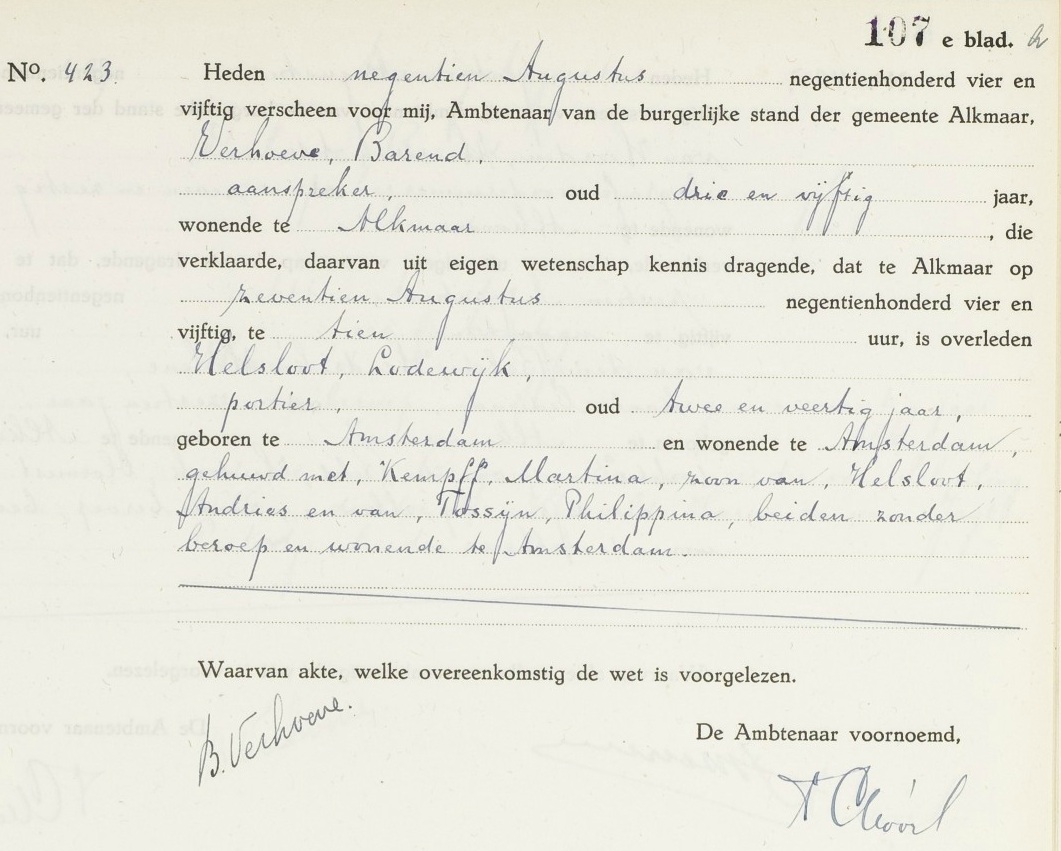 107 e blad.
No. 423 Heden negentien Augustus negentienhonderd vier en
vijftig verscheen voor mij, Ambtenaar van de burgerlijke stand der gemeente Alkmaar,
Verhoeve, Barend,
aanspreker, oud drie en vijftig jaar,
wonende te Alkmaar, die
verklaarde, daarvan uit eigen wetenschap kennis dragende, dat te Alkmaar op
zeventien Augustus negentienhonderd vier en
vijftig, te tien uur, is overleden
Helsloot, Lodewijk,
portier, oud twee en veertig jaar,
geboren te Amsterdam en wonende te Amsterdam,
gehuwd met, Kempff, Martina, zoon van, Helsloot,
Andries en van, Philippina, beiden zonder
beroep en wonende te Amsterdam.
Waarvan akte, welke overeenkomstig de wet is voorgelezen.
B. Verhoeve.
De Ambtenaar voornoemd,